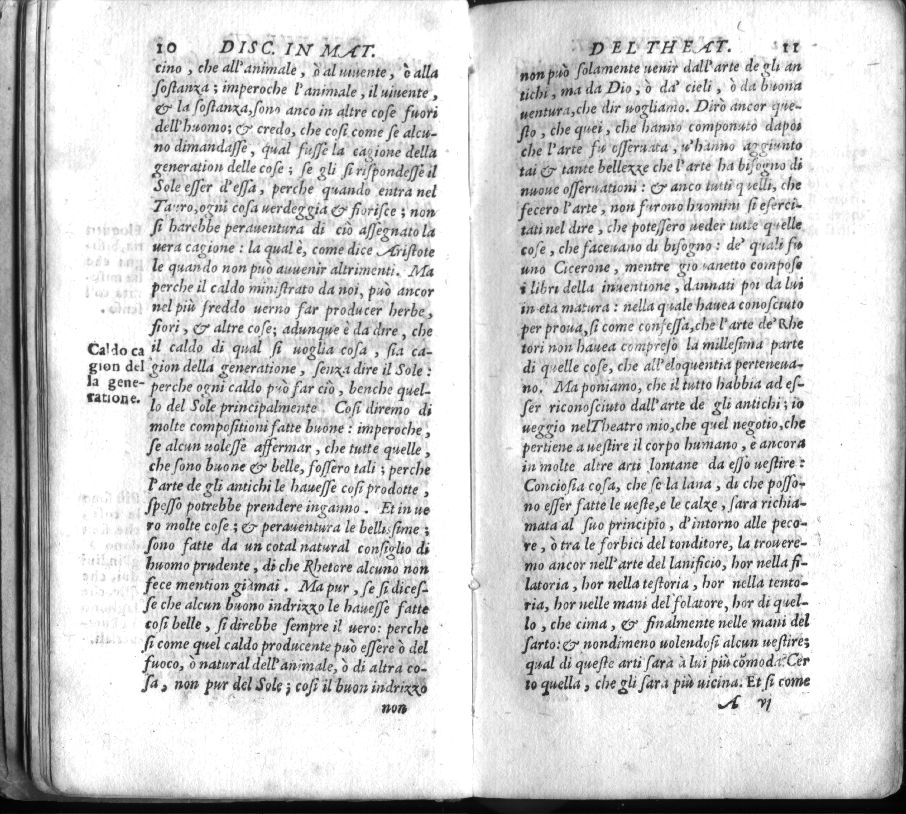 10 DISC. IN MAT.
cino, che all'animale, ò al uiuente, ò alla
sostanza; imperoche l'animale, il uiuente,
& la sostanza, sono anco in altre cose fuori
dell'huomo; & credo, che cosi come se alcu-
no dimandasse, qual fusse la cagione della
generation delle cose; se gli si rispondesse il
Sole esser d'essa, perche quando entra nel
Tauro, ogni cosa uerdeggia & fiorisce; non
si harebbe perauentura di ciò assegnato la
uera cagione: la qual è, come dice Aristote
le quando non può auuenir altrimenti. Ma
perche il caldo ministrato da noi, può ancor
nel più freddo uerno far producer herbe,
fiori, & altre cose; adunque è da dire, che
il caldo di qual si uoglia cosa, sia ca-
gion della generatione, senza dire il Sole:
perche ogni caldo può far ciò, benche quel-
lo del Sole principalmente. Cosi diremo di
molte compositioni fatte buone: imperoche,
se alcun uolesse affermar, che tutte quelle,
che sono buone & belle, fossero tali; perche
l'arte de gli antichi le hauesse cosi prodotte,
spesso potrebbe prendere inganno. Et in ue
ro molte cose; & perauentura le bellissime;
sono fatte da un cotal natural consiglio di
huomo prudente, di che Rhetore alcuno non
fece mention giamai. Ma pur, se si dices-
se che alcun buono indrizzo le hauesse fatte
cosi belle, si direbbe sempre il uero: perche
si come quel caldo producente può essere ò del
fuoco, ò natural dell'animale, ò di altra co-
sa, non pur del Sole; cosi il buon indrizzo
non
Caldo ca
gion del
la gene-
ratione.
DEL THEAT. 11
non può solamente uenir dall'arte de gli an
tichi, ma da Dio, ò da' cieli, ò da buona
uentura, che dir uogliamo. Dirò ancor que-
sto, che quei, che hanno componuto dapoi
che l'arte fu osseruata, u'hanno aggiunto
tai & tante bellezze che l'arte ha bisogno di
nuoue osseruationi: & anco tutti quelli, che
fecero l'arte, non furono huomini si eserci-
tati nel dire, che potessero ueder tutte quelle
cose, che faceuano di bisogno: de' quali fu
uno Cicerone, mentre giouanetto compose
i libri della inuentione, dannati poi da lui
in età matura: nella quale hauea conosciuto
per proua, si come confessa, che l'arte de' Rhe
tori non hauea compreso la millesima parte
di quelle cose, che all'eloquentia perteneua-
no. Ma poniamo, che il tutto habbia ad es-
ser riconosciuto dall'arte de gli antichi; io
ueggio nel Theatro mio, che quel negotio, che
pertiene a uestire il corpo humano, è ancora
in molte altre arti lontane da esso uestire:
Conciosia cosa, che se la lana, di che posso-
no esser fatte le ueste, e le calze, sara richia-
mata al suo principio, d'intorno alle peco-
re, ò tra le forbici del tonditore, la trouere-
mo ancor nell'arte del lanificio, hor nella fi-
latoria, hor nella testoria, hor nella tento-
ria, hor nelle mani del folatore, hor di quel-
lo, che cima, & finalmente nelle mani del
sarto: & nondimeno uolendosi alcun uestire;
qual di queste arti sara à lui più cōmoda? Cer
to quella, che gli sara più uicina. Et si come
A vj